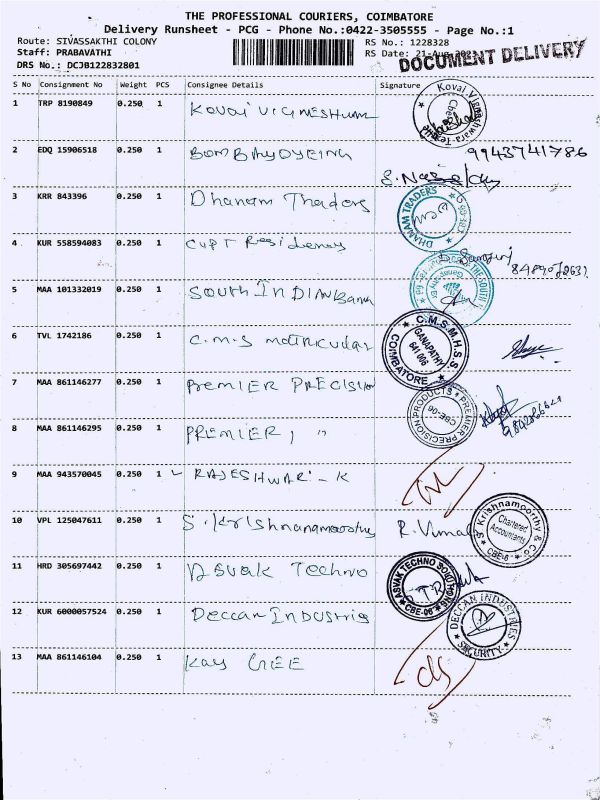 THE PROFESSIONAL COURIERS, COIMBATORE
Delivery Runsheet - PCG - Phone No.:0422-3505555 - Page No.:1
Route: SIVASSAKTHI COLONY RS No.: 1228328
Staff: PRABAVATHI RS Date: 21-Aug
DOCUMENT DELIVERY
DRS No.: DCJB122832801
S No Consignment No Weight PCS Consignee Details Signature
1 TRP 8190849 0.250 1 KOVAI VIGNESHWAR
2 EDQ 15906518 0.250 1 BOMBAYDYEING 9943741786
3 KRR 843396 0.250 1 Dhanam Traders
DHANAM TRADERS
4 KUR 558594083 0.250 1 CUPT Residency
5 MAA 101332019 0.250 1 SOUTH INDIAN Bank
6 TVL 1742186 0.250 1 C.M.S matricular
C.M.S.M.H.S.S.
GANAPATHY
641 006
COIMBATORE
7 MAA 861146277 0.250 1 PREMIER PRECISION
PREMIER PRECISION PRODUCTS
CBE-06
8 MAA 861146295 0.250 1 PREMIER, "
9 MAA 943570045 0.250 1 RAJESHWARI - K
10 VPL 125047611 0.250 1 S. Krishnanamoorthy R. Vimal
S. Krishnamoorthy & Co
Chartered
Accountants
CBE-6
11 HRD 305697442 0.250 1 ASVAK Techno
ASVAK TECHNO SOLUTIONS
CBE-06
12 KUR 6000057524 0.250 1 Deccan Industries
DECCAN INDUSTRIES
SECURITY
13 MAA 861146104 0.250 1 Kay GEE